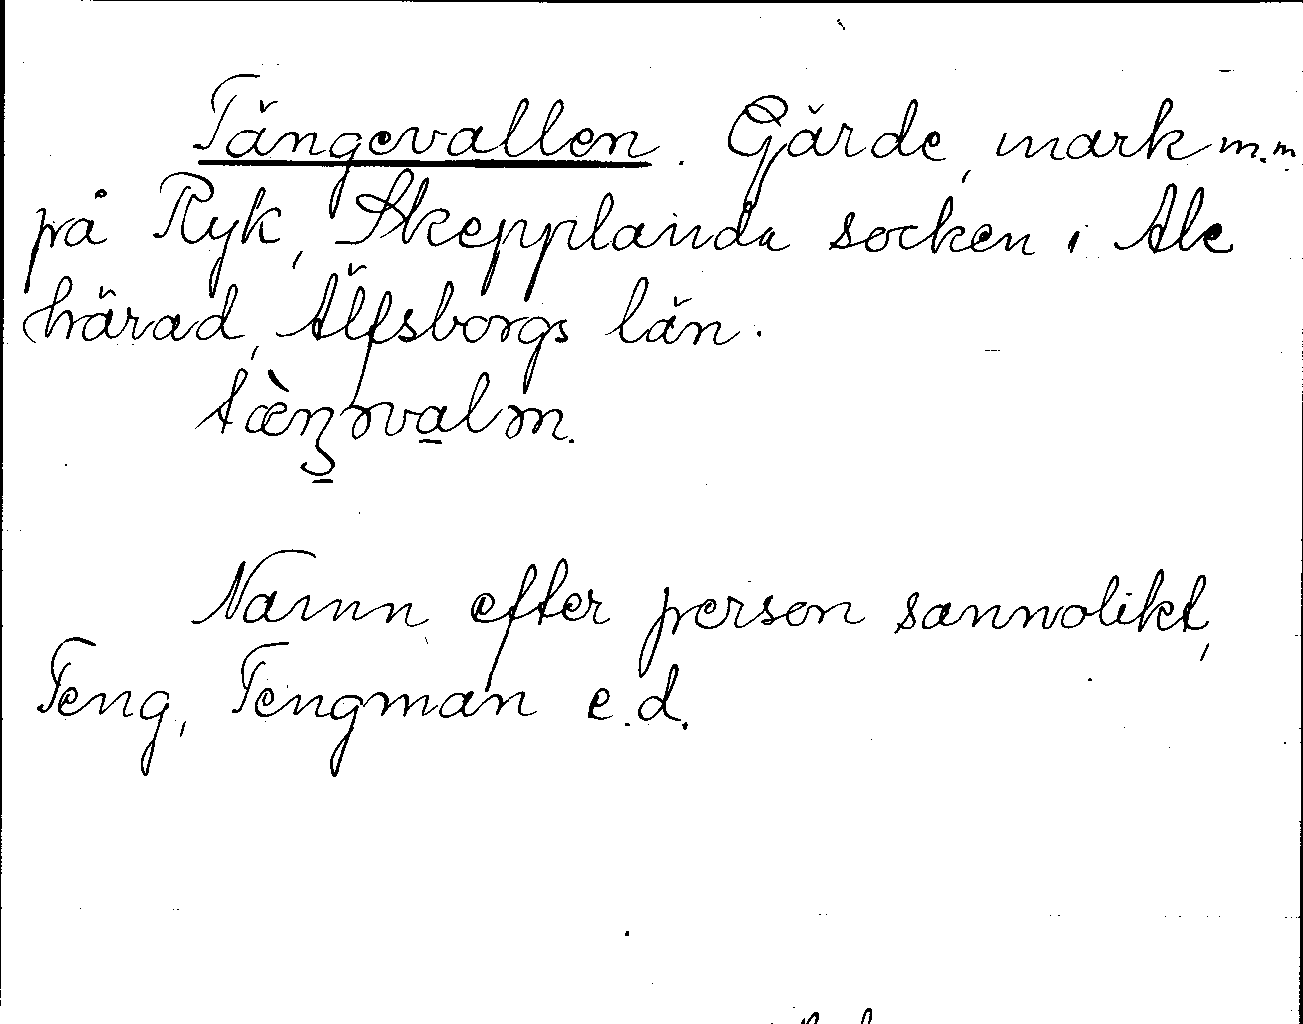 Tängevallen. Gärde, mark m.m.
på Ryk, Skepplanda socken i Ale
härad, Älfsborgs län.
Namn efter person sannolikt,
Teng, Tengman e.d.